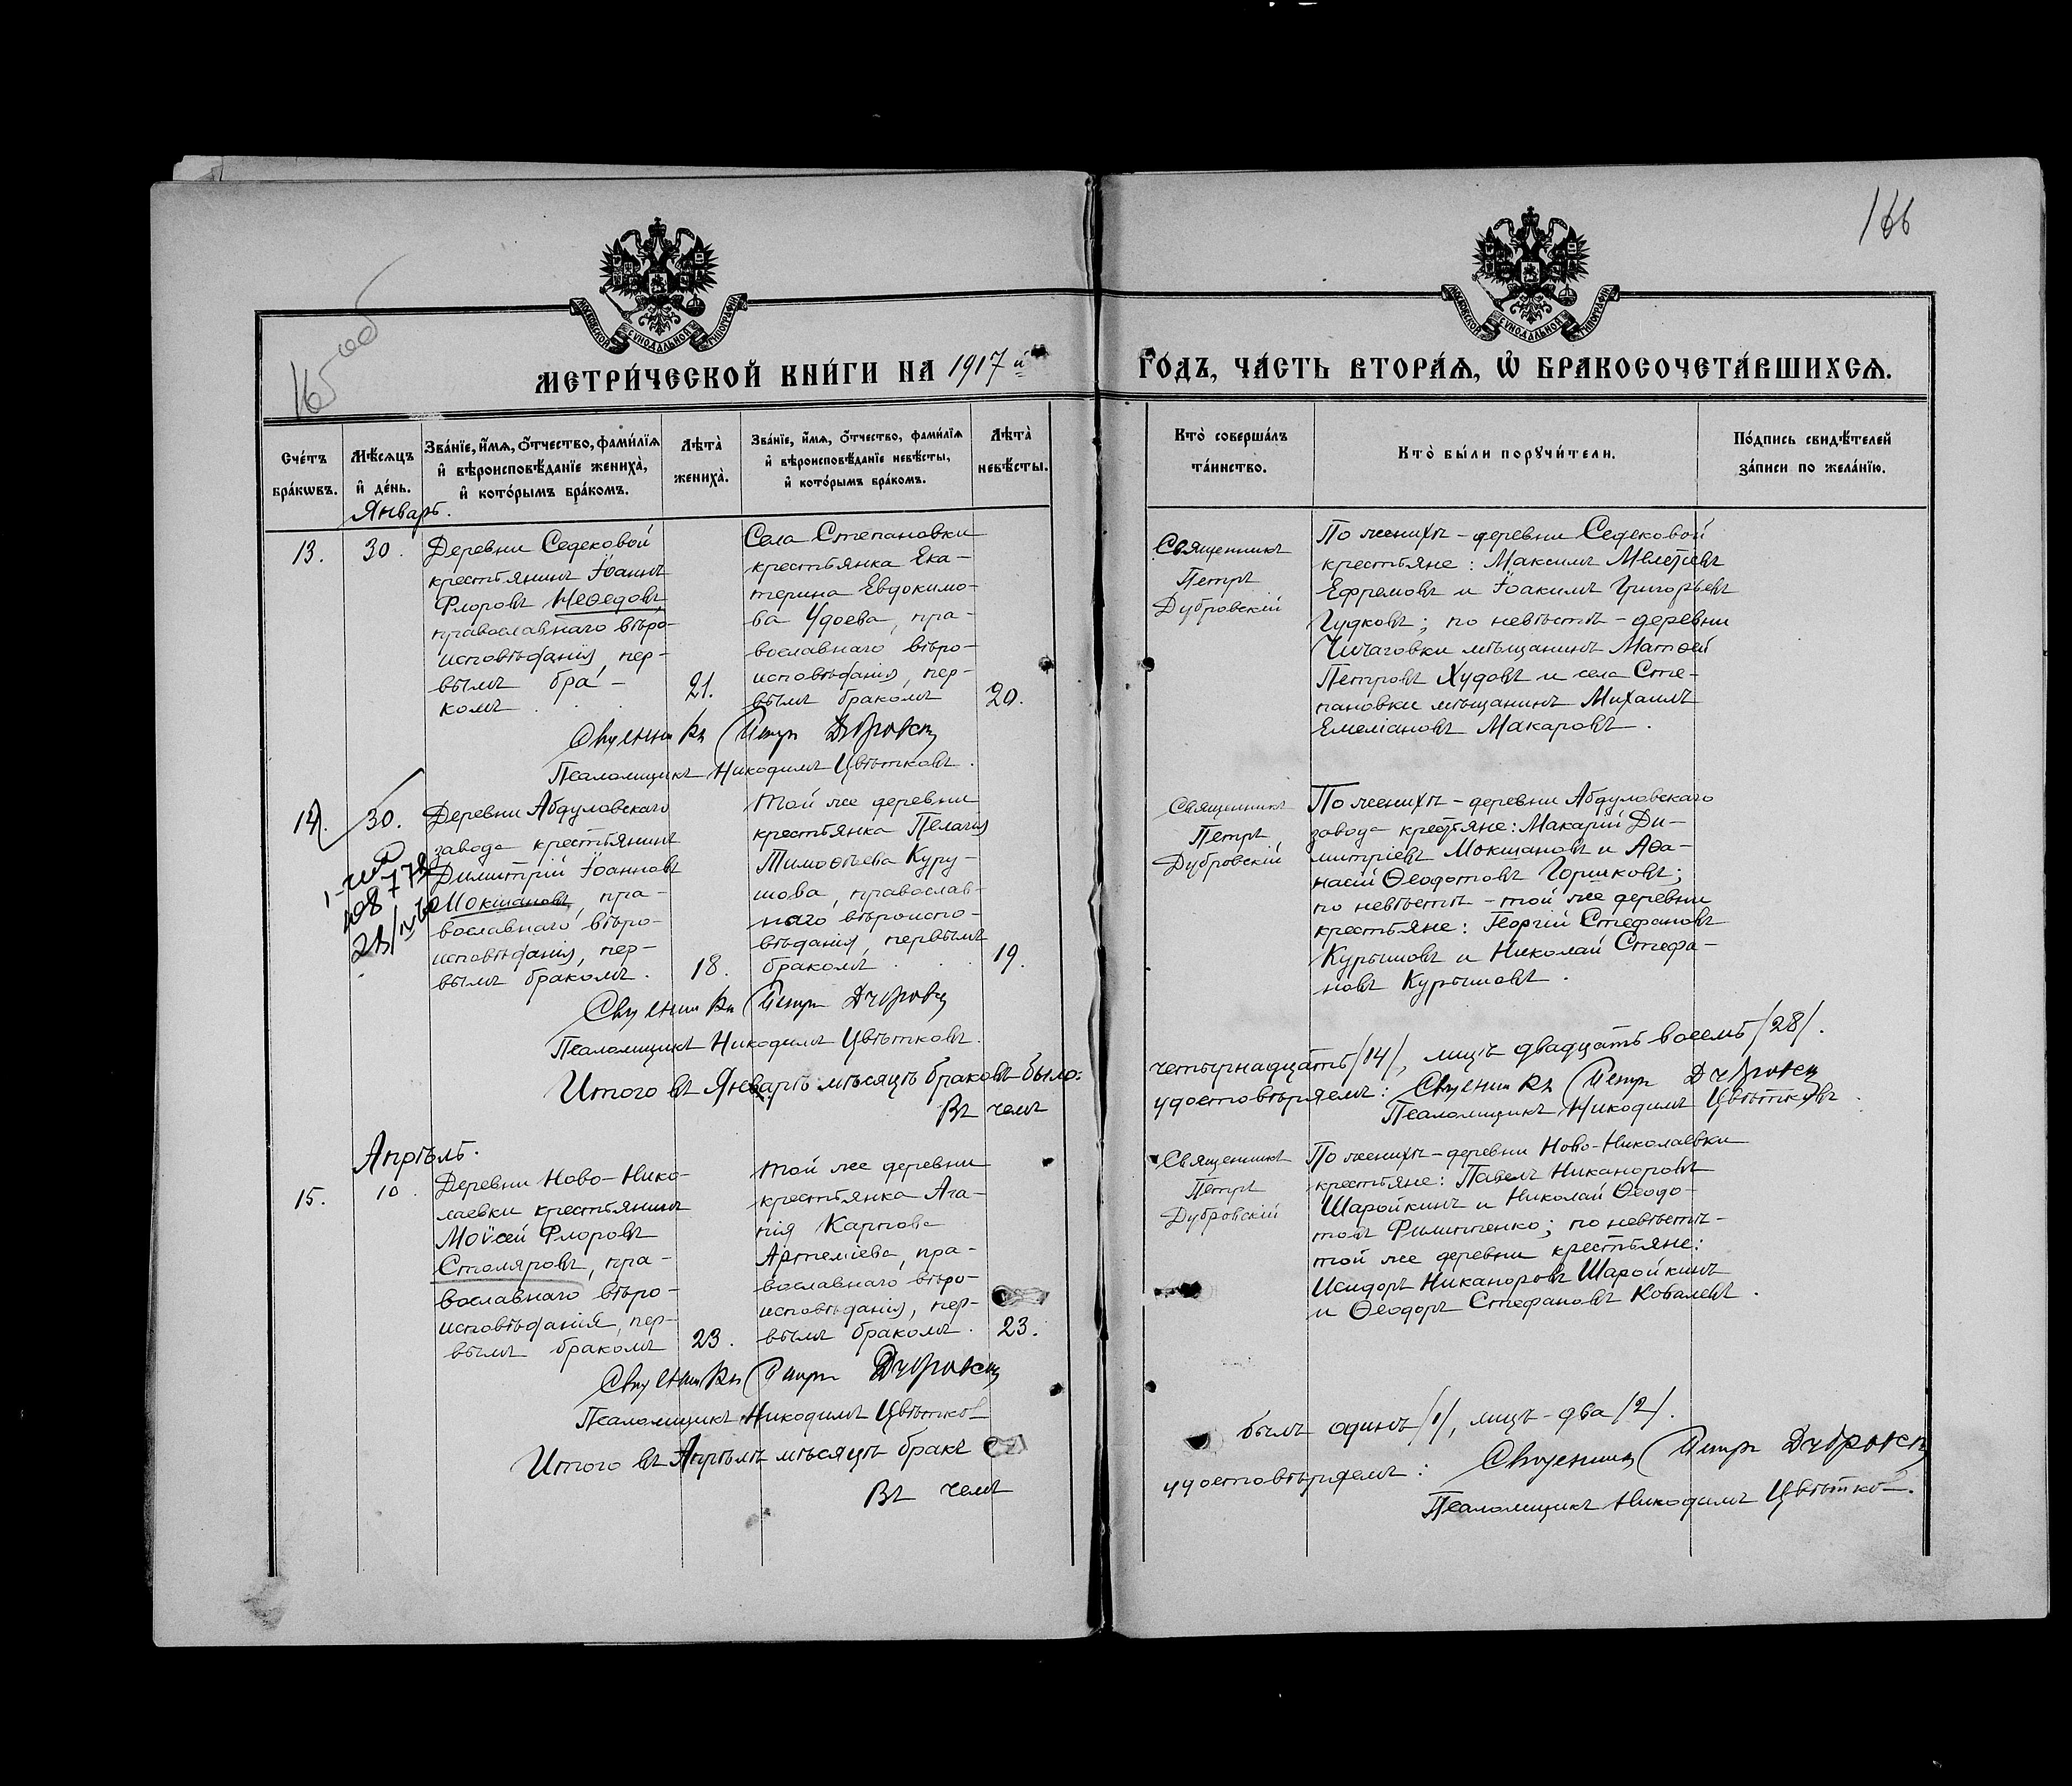 166
165 об
МОСКОВСКОЙ СѴНОДАЛЬНОЙ ТИПОГРАФІИ
МОСКОВСКОЙ СѴНОДАЛЬНОЙ ТИПОГРАФІИ
МЕТРИ́ЧЕСКОЙ КНИ́ГИ НА 1917 й
ГО́ДЪ, ЧА́СТЬ ВТОРА́Ѧ, Ѡ҆ БРАКОСОЧЕТА́ВШИХСѦ.
Сче́тъ
бра́кѡвъ.
Мѣ́сѧцъ
и҆ де́нь.
Зва́нїе, и҆́мѧ, ѻ҆́тчество, фами́лїѧ
и҆ вѣроисповѣ́данїе жениха̀,
и҆ кото́рымъ бра́комъ.
Лѣта̀
жениха̀.
Зва́нїе, и҆́мѧ, ѻ҆́тчество, фами́лїѧ
и҆ вѣроисповѣ́данїе невѣ́сты,
и҆ кото́рымъ бра́комъ.
Лѣта̀
невѣ́сты.
Кто̀ соверша́лъ
та́инство.
Кто̀ бы́ли порꙋчи́тели.
По́дпись свидѣ́телей
за́писи по жела́нїю.
Январь.
13.
30.
Деревни Седековой
крестьянинъ Іоаннъ
Флоровъ Неѳедовъ,
православнаго вѣро-
исповѣданія, пер-
вымъ бра-
комъ . . .
21.
Села Степановки
крестьянка Ека-
терина Евдокимо-
ва Удоева, пра-
вославнаго вѣро-
исповѣданія, пер-
вымъ бракомъ
20.
Священникъ
Петръ
Дубровскій
По женихѣ - деревни Седековой
крестьяне: Максимъ Мелетіевъ
Ефремовъ и Іоакимъ Григорьевъ
Гудковъ; по невѣстѣ - деревни
Чичаговки мѣщанинъ Матѳей
Петровъ Худовъ и села Сте-
пановки мѣщанинъ Михаилъ
Емеліановъ Макаровъ.
Священникъ Петръ Дубровскій
Псаломщикъ Никодимъ Цвѣтковъ.
14.
30.
Деревни Абдуловскаго
завода крестьянинъ
Димитрій Іоанновъ
Мокшановъ, пра-
вославнаго вѣро-
исповѣданія, пер-
вымъ бракомъ.
18.
Той же деревни
крестьянка Пелагія
Тимоѳеева Куру-
шова, православ-
наго вѣроиспо-
вѣданія, первымъ
бракомъ . . .
19.
Священникъ
Петръ
Дубровскій
По женихѣ - деревни Абдуловскаго
завода крестьяне: Макарій Ди-
митріевъ Мокшановъ и Аѳа-
насій Ѳеодотовъ Горшковъ;
по невѣстѣ - той же деревни
крестьяне: Георгій Стефановъ
Курышовъ и Николай Стефа-
новъ Курышовъ.
Священникъ Петръ Дубровскій
Псаломщикъ Никодимъ Цвѣтковъ.
Итого въ Январѣ мѣсяцѣ браковъ было:
четырнадцать /14/, лицъ двадцать восемь /28/.
Въ чемъ
удостовѣряемъ: Священникъ Петръ Дубровскій
Псаломщикъ Никодимъ Цвѣтковъ.
Апрѣль.
15.
10
Деревни Ново-Нико-
лаевки крестьянинъ
Моѵсей Флоровъ
Столяровъ, пра-
вославнаго вѣро-
исповѣданія, пер-
вымъ бракомъ
23.
Той же деревни
крестьянка Ага-
пія Карпова
Артеміева, пра-
вославнаго вѣро-
исповѣданія, пер-
вымъ бракомъ.
23.
Священникъ
Петръ
Дубровскій
По женихѣ - деревни Ново-Николаевки
крестьяне: Павелъ Никаноровъ
Шаройкинъ и Николай Ѳеодо-
товъ Филипенко; по невѣстѣ -
той же деревни крестьяне:
Исидоръ Никаноровъ Шаройкинъ
и Ѳеодоръ Стефановъ Ковалевъ.
Священникъ Петръ Дубровскій
Псаломщикъ Никодимъ Цвѣтковъ
Итого въ Апрѣлѣ мѣсяцѣ бракъ
былъ одинъ /1/, лицъ - два /2/.
Въ чемъ
удостовѣряемъ: Священникъ Петръ Дубровскій
Псаломщикъ Никодимъ Цвѣтковъ.